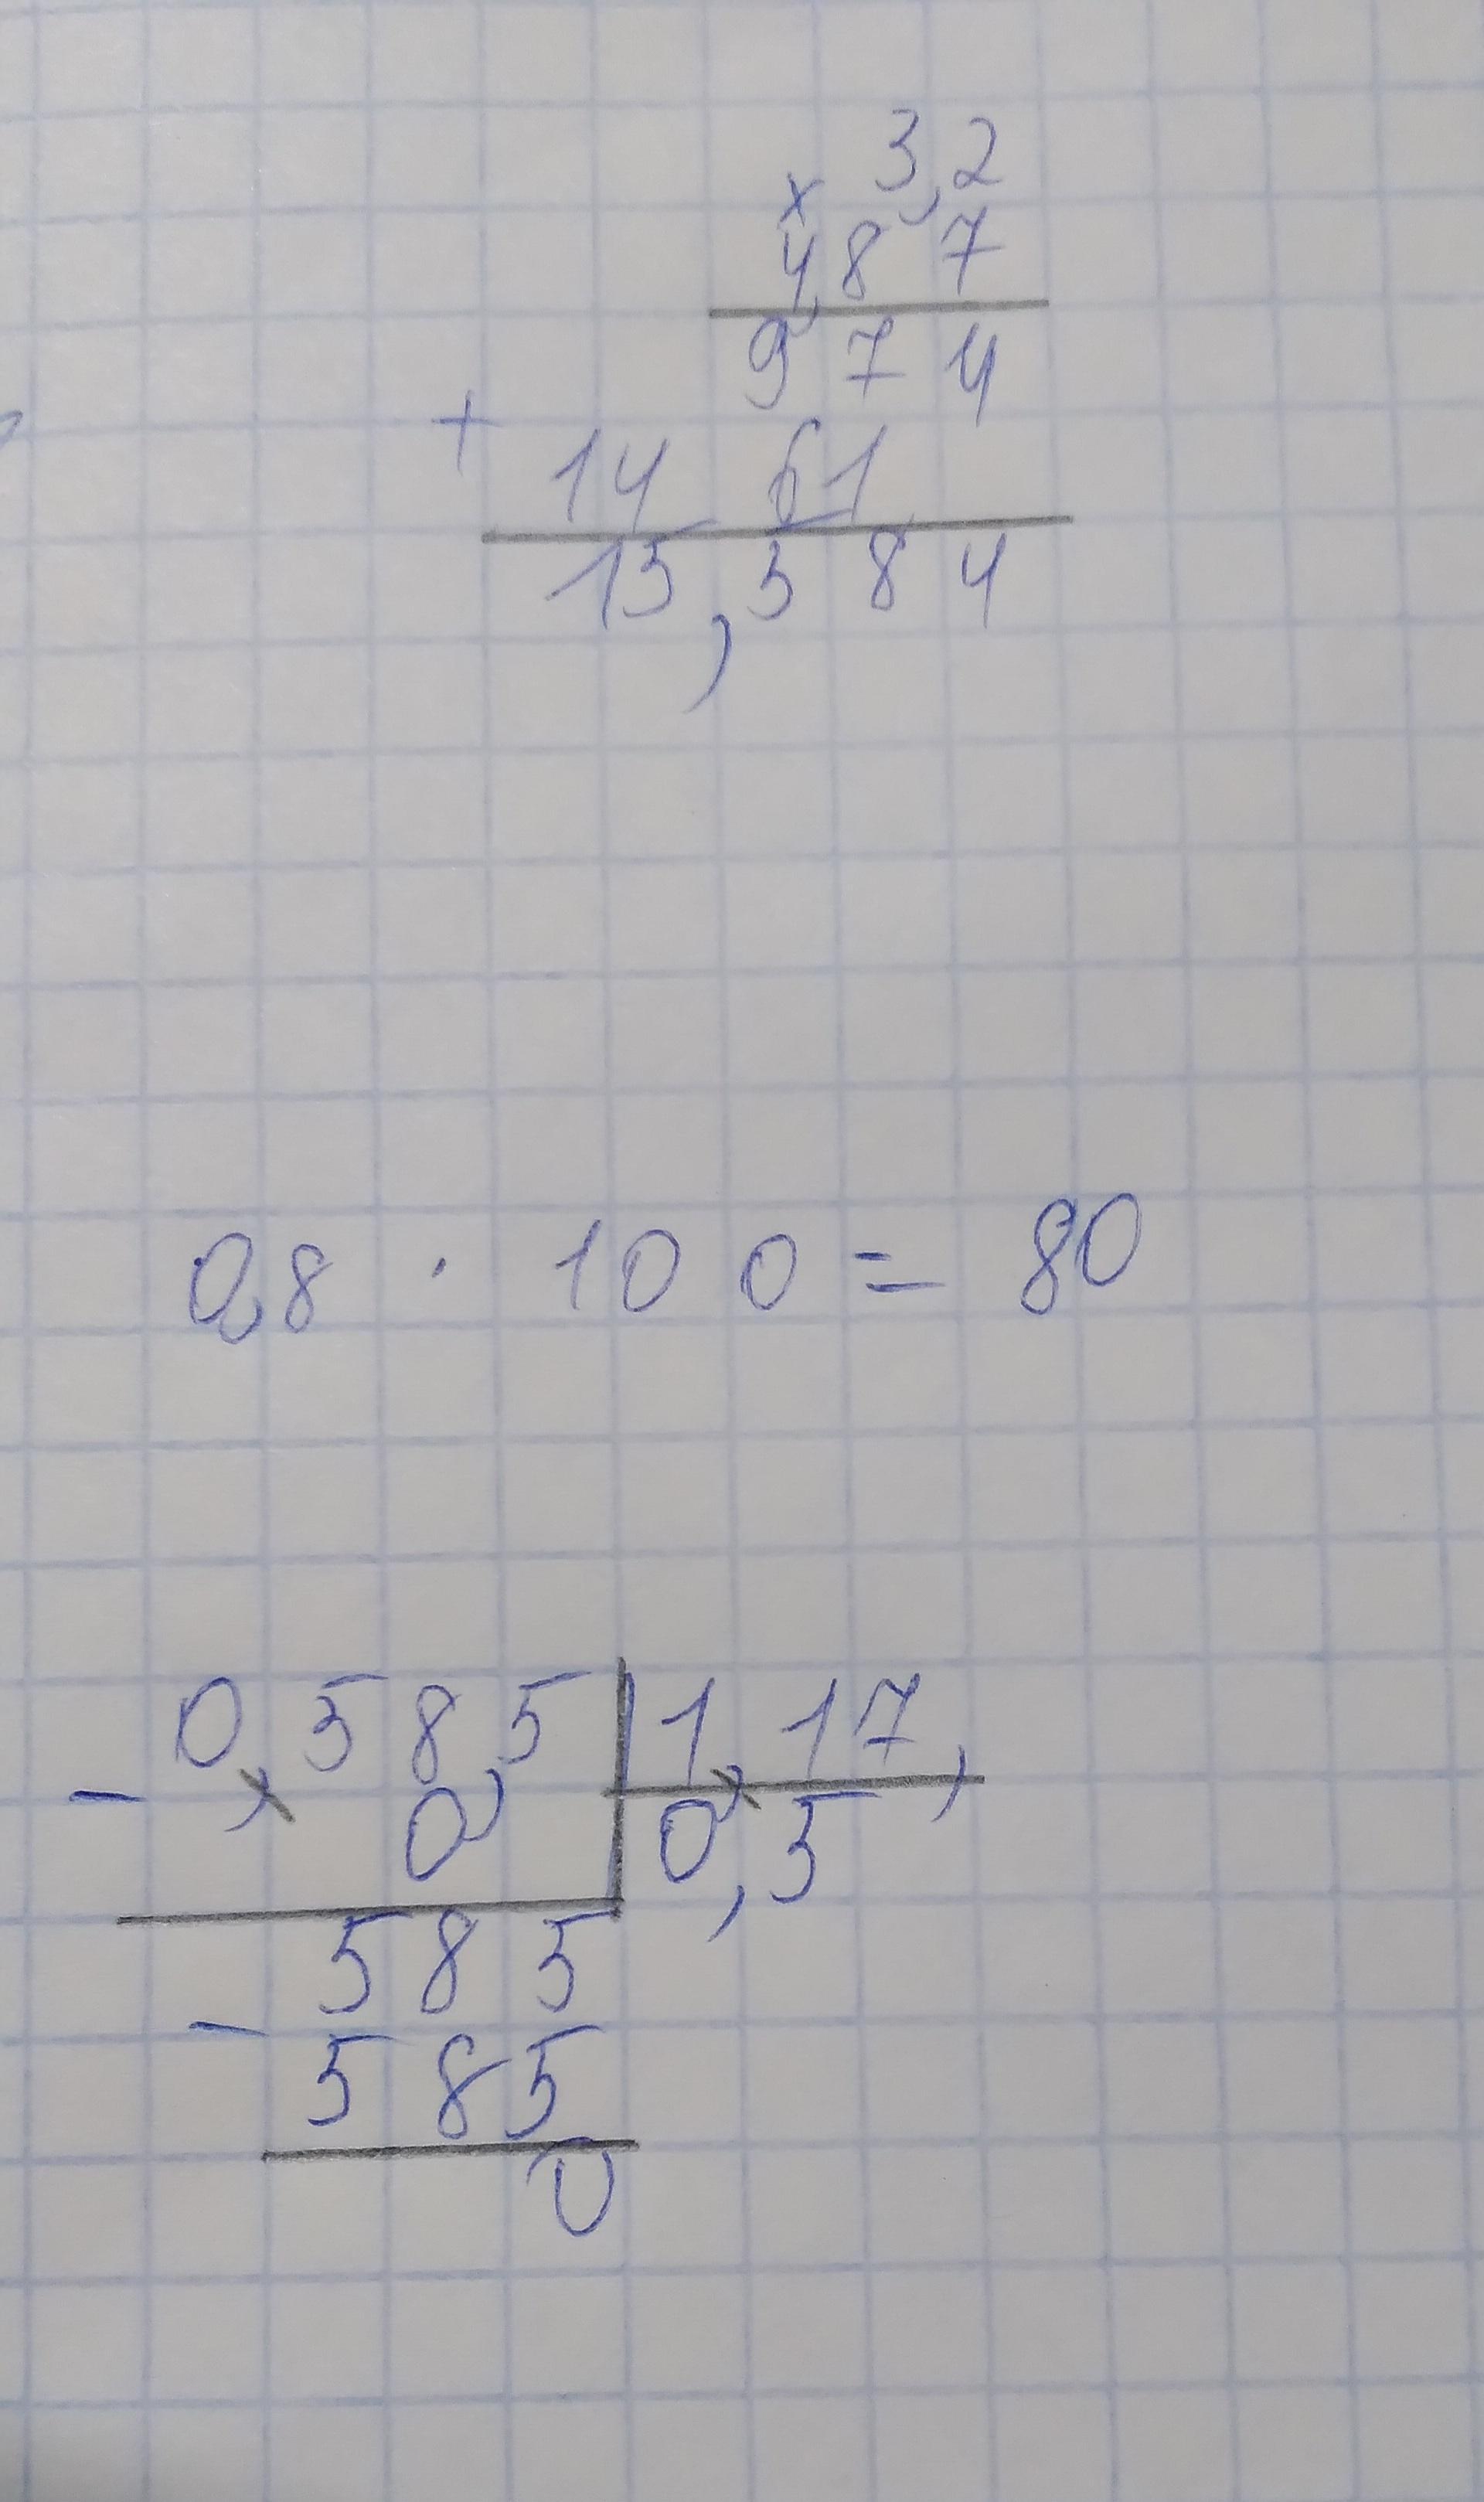 3,2
×
4,87
974
+
1461
15,584
0,8 · 100 = 80
0,58,5 | 1,17,
- 0 | 0,5
585
-
585
0